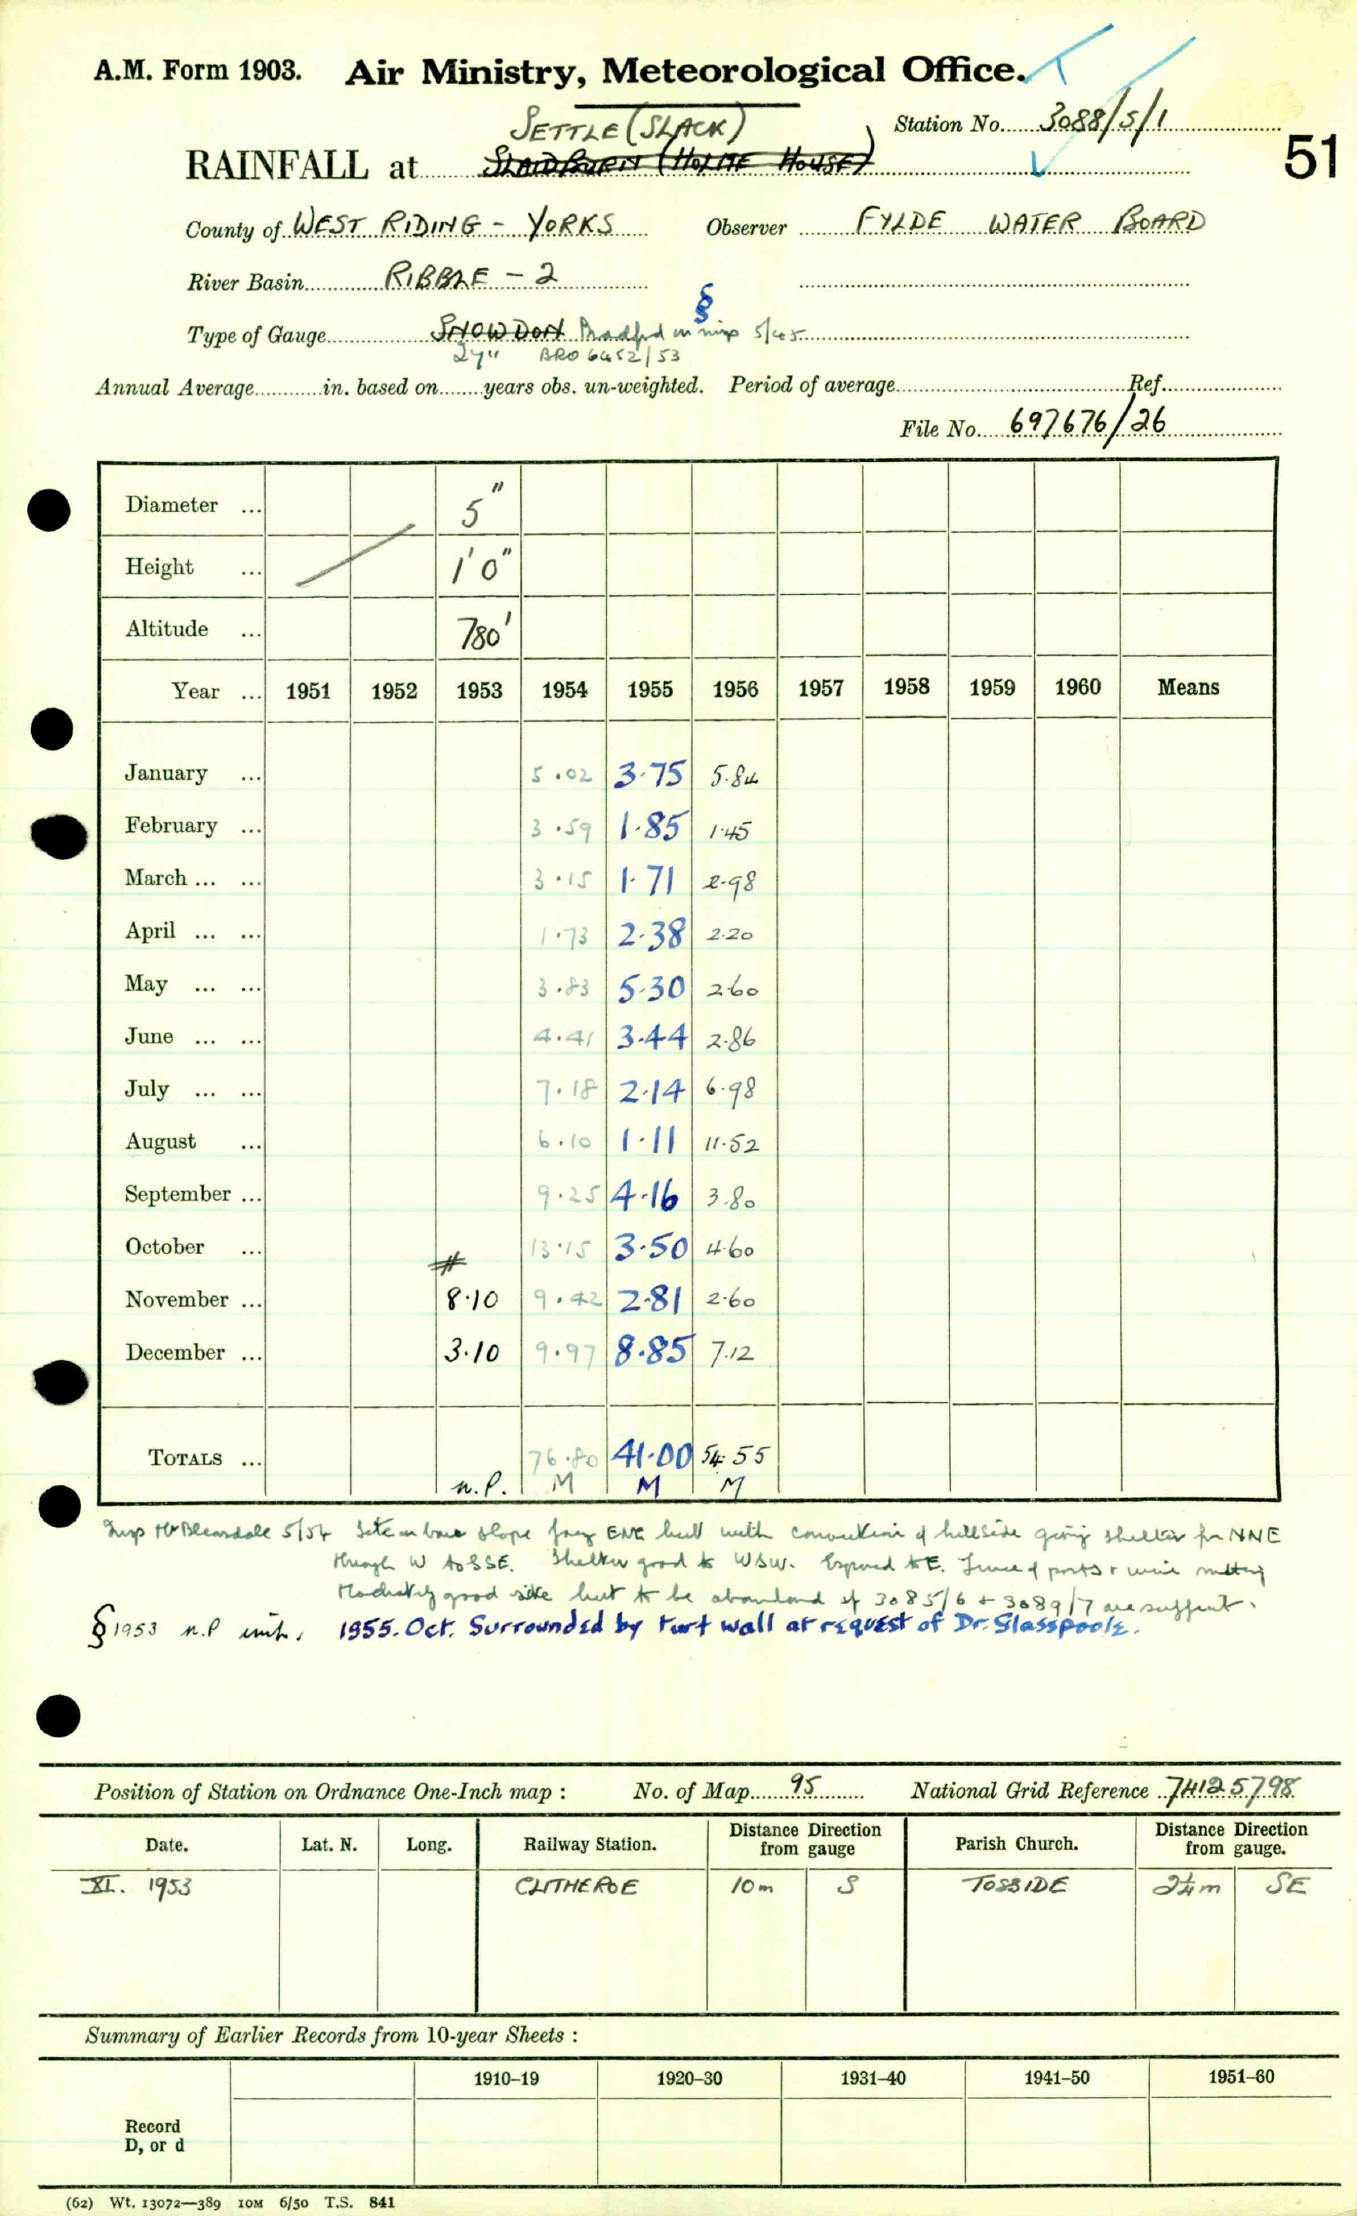 A.M. Form 1903. Air Ministry, Meteorological Office.
SETTLE (SLACK) Station No. 3088/5/1
RAINFALL at SLAIDBURN (HOLME HOUSE) 51
County of WEST RIDING - YORKS Observer FYLDE WATER BOARD
River Basin RIBBLE - 2
§
Type of Gauge SNOWDON Bradford on insp 5/45
24" BRO 6452/53
Annual Average in. based on years obs. un-weighted. Period of average Ref.
File No. 697676/26
Diameter ... 5"
Height ... 1'0"
Altitude ... 780'
Year ... 1951 1952 1953 1954 1955 1956 1957 1958 1959 1960 Means
January ... 5.02 3.75 5.84
February ... 3.59 1.85 1.45
March ... ... 3.15 1.71 2.98
April ... ... 1.73 2.38 2.20
May ... ... 3.83 5.30 2.60
June ... ... 4.41 3.44 2.86
July ... ... 7.18 2.14 6.98
August ... 6.10 1.11 11.52
September ... 9.25 4.16 3.80
October ... 13.15 3.50 4.60
November ... 8.10 9.42 2.81 2.60
December ... 3.10 9.97 8.85 7.12
TOTALS ... 76.80 41.00 54.55
n.P. M M M
Insp Mr Bleasdale 5/54 Site on slope facing ENE but with convection of hillside giving shelter for NNE
through W to SSE. Shelter good to WSW. Exposed to E. Fence of posts + wire netting
Moderately good site but to be abandoned if 3085/6 + 3089/7 are sufficient.
§ 1953 n.P 1955. Oct. Surrounded by turf wall at request of Dr. Glasspoole.
Position of Station on Ordnance One-Inch map : No. of Map 95 National Grid Reference 74125798
Date. Lat. N. Long. Railway Station. Distance Direction from gauge Parish Church. Distance Direction from gauge.
XI. 1953 CLITHEROE 10m S TOSSIDE 2¼m SE
Summary of Earlier Records from 10-year Sheets :
1910–19 1920–30 1931–40 1941–50 1951–60
Record
D, or d
(62) Wt. 13072—389 10M 6/50 T.S. 841